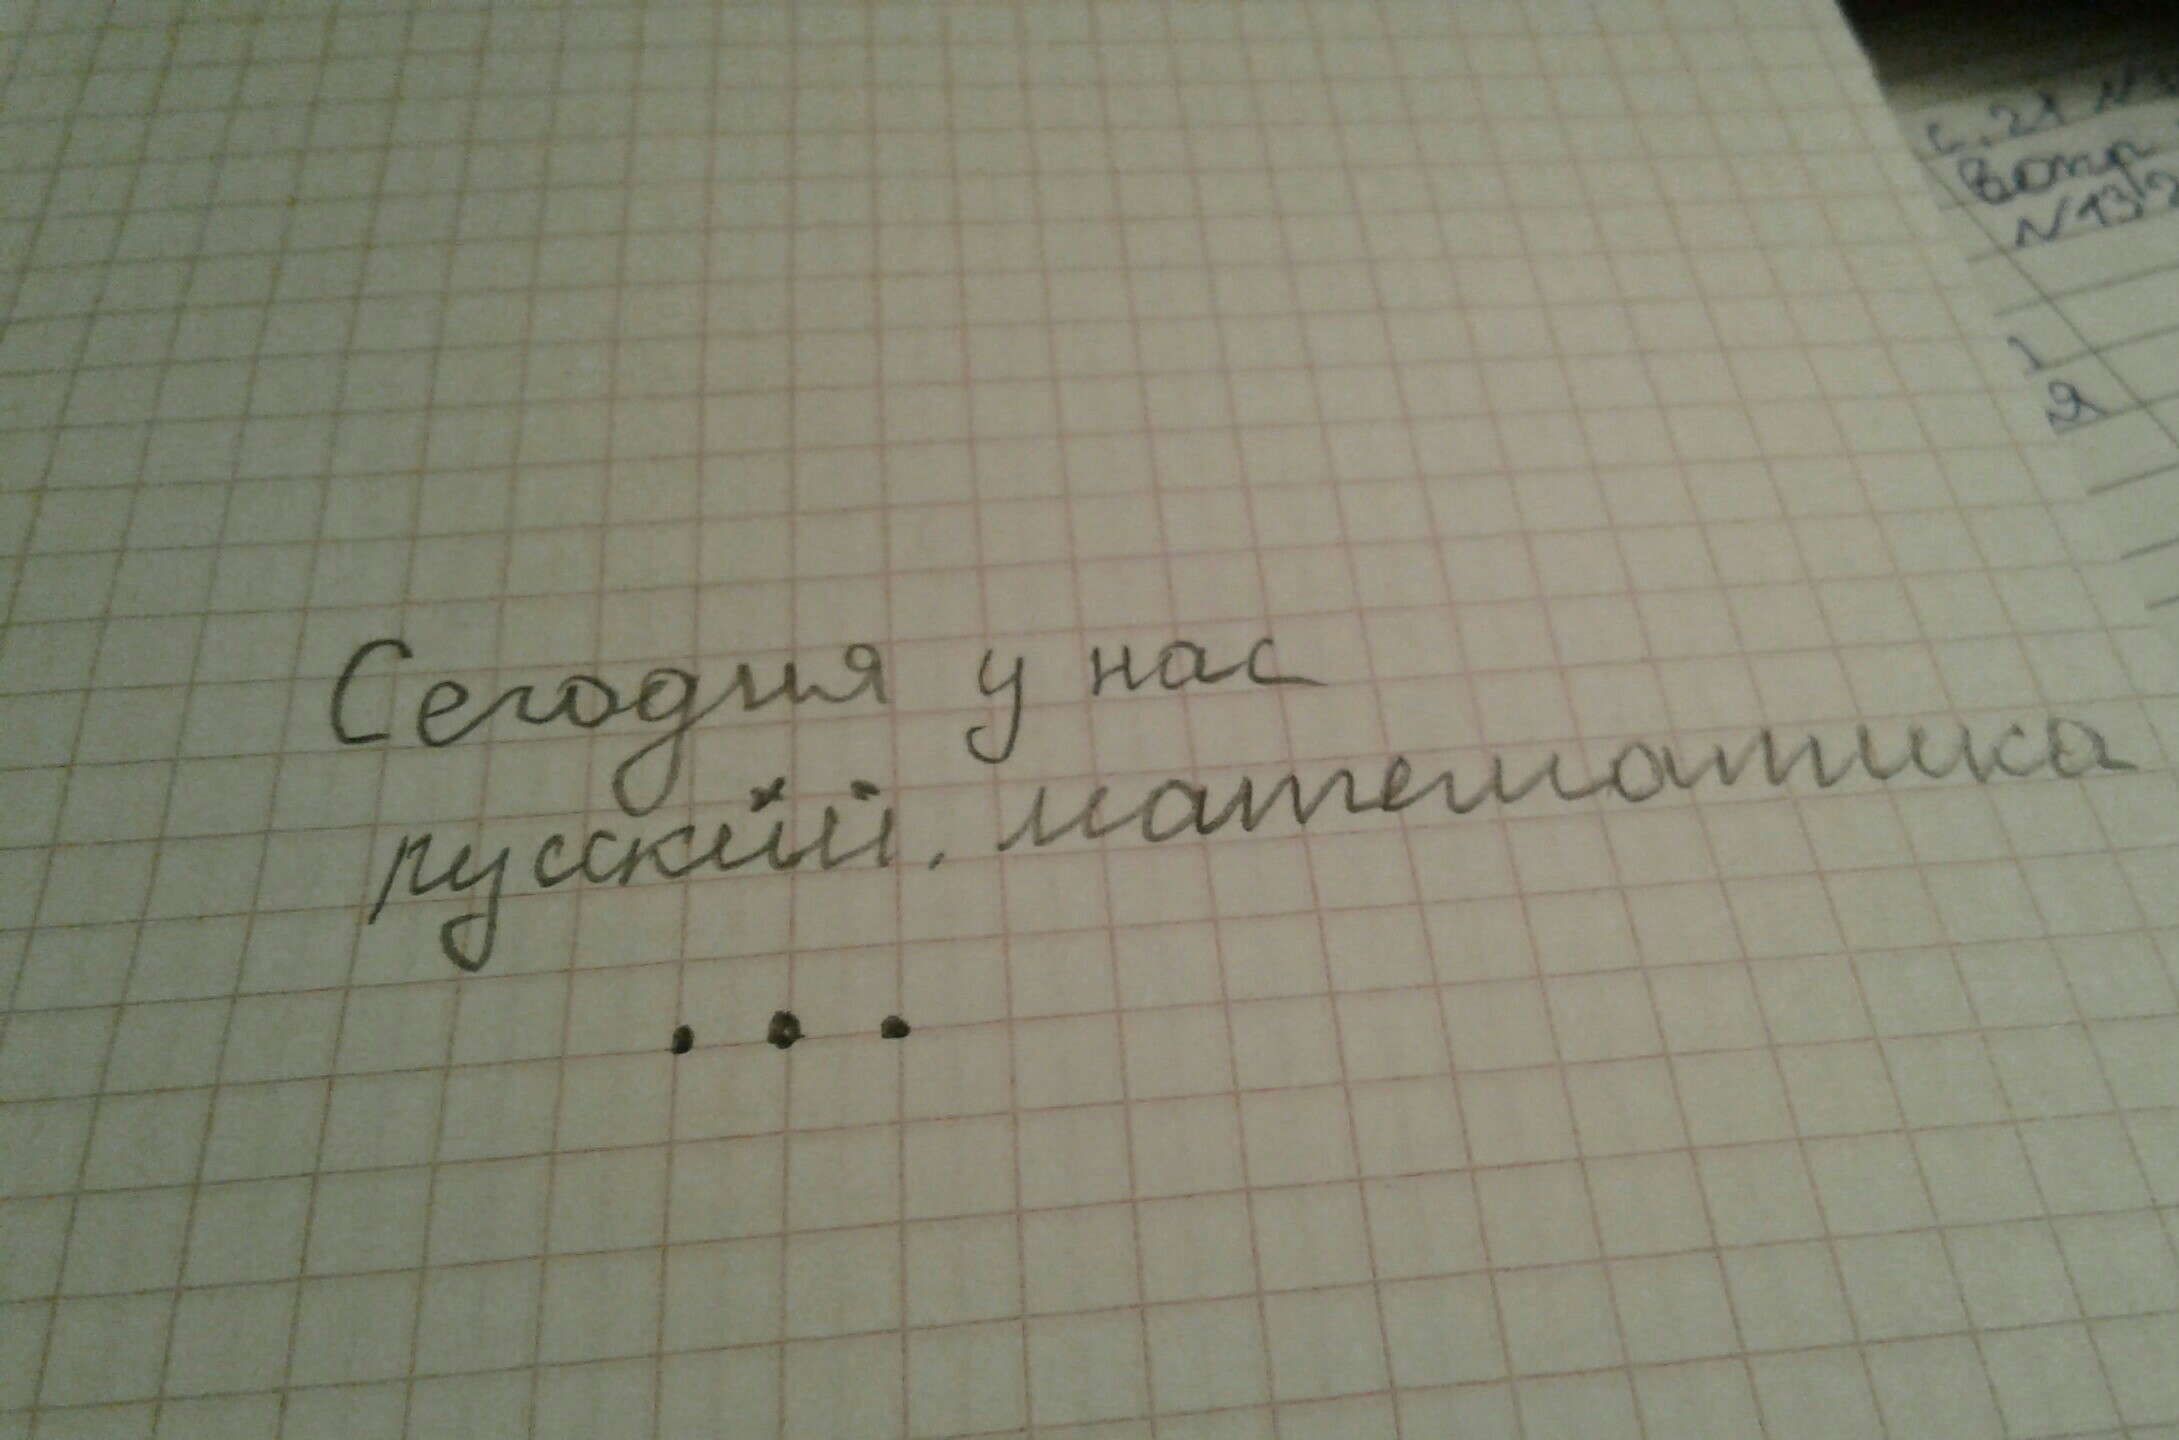 Сегодня у нас
русский, математика
. . .
с. 21
вопр
N 132
1
2